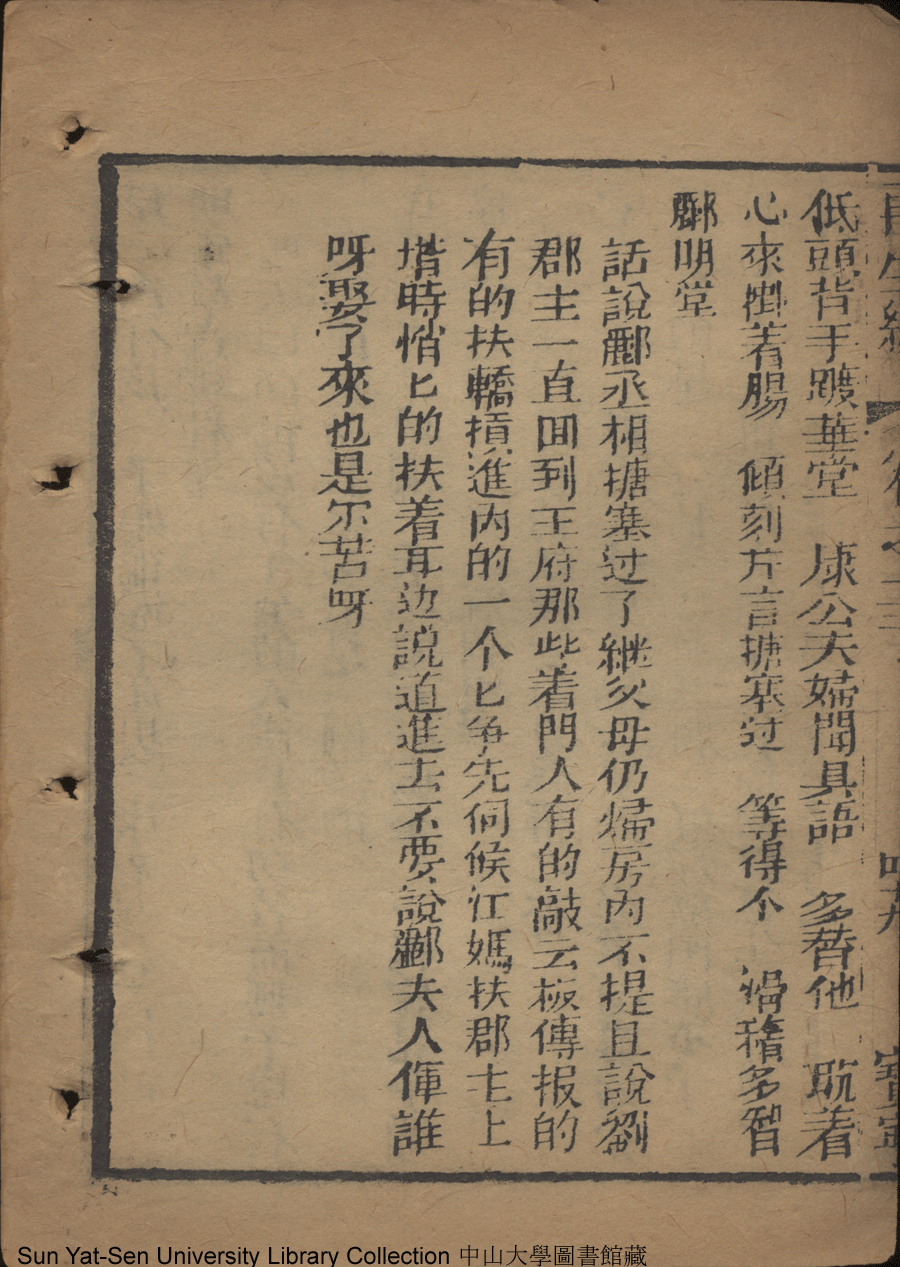 再生緣 卷之三 四十九 寶寧
低頭背手踱華堂 康公夫婦聞具語 多替他 耽着
心來掛着腸 傾刻方言搪塞过 等得个 滑稽多智
酈明堂
話說酈丞相搪塞过了継父母仍㷌房內不提且說劉
郡主一直回到王府那些着門人有的敲云板傳报的
有的扶轎損進內的一个匕争先伺候江媽扶郡主上
堦時悄匕的扶着耳边說道進去不要說酈夫人俥誰
呀娶了來也是尔苦呀
Sun Yat-Sen University Library Collection 中山大學圖書館藏